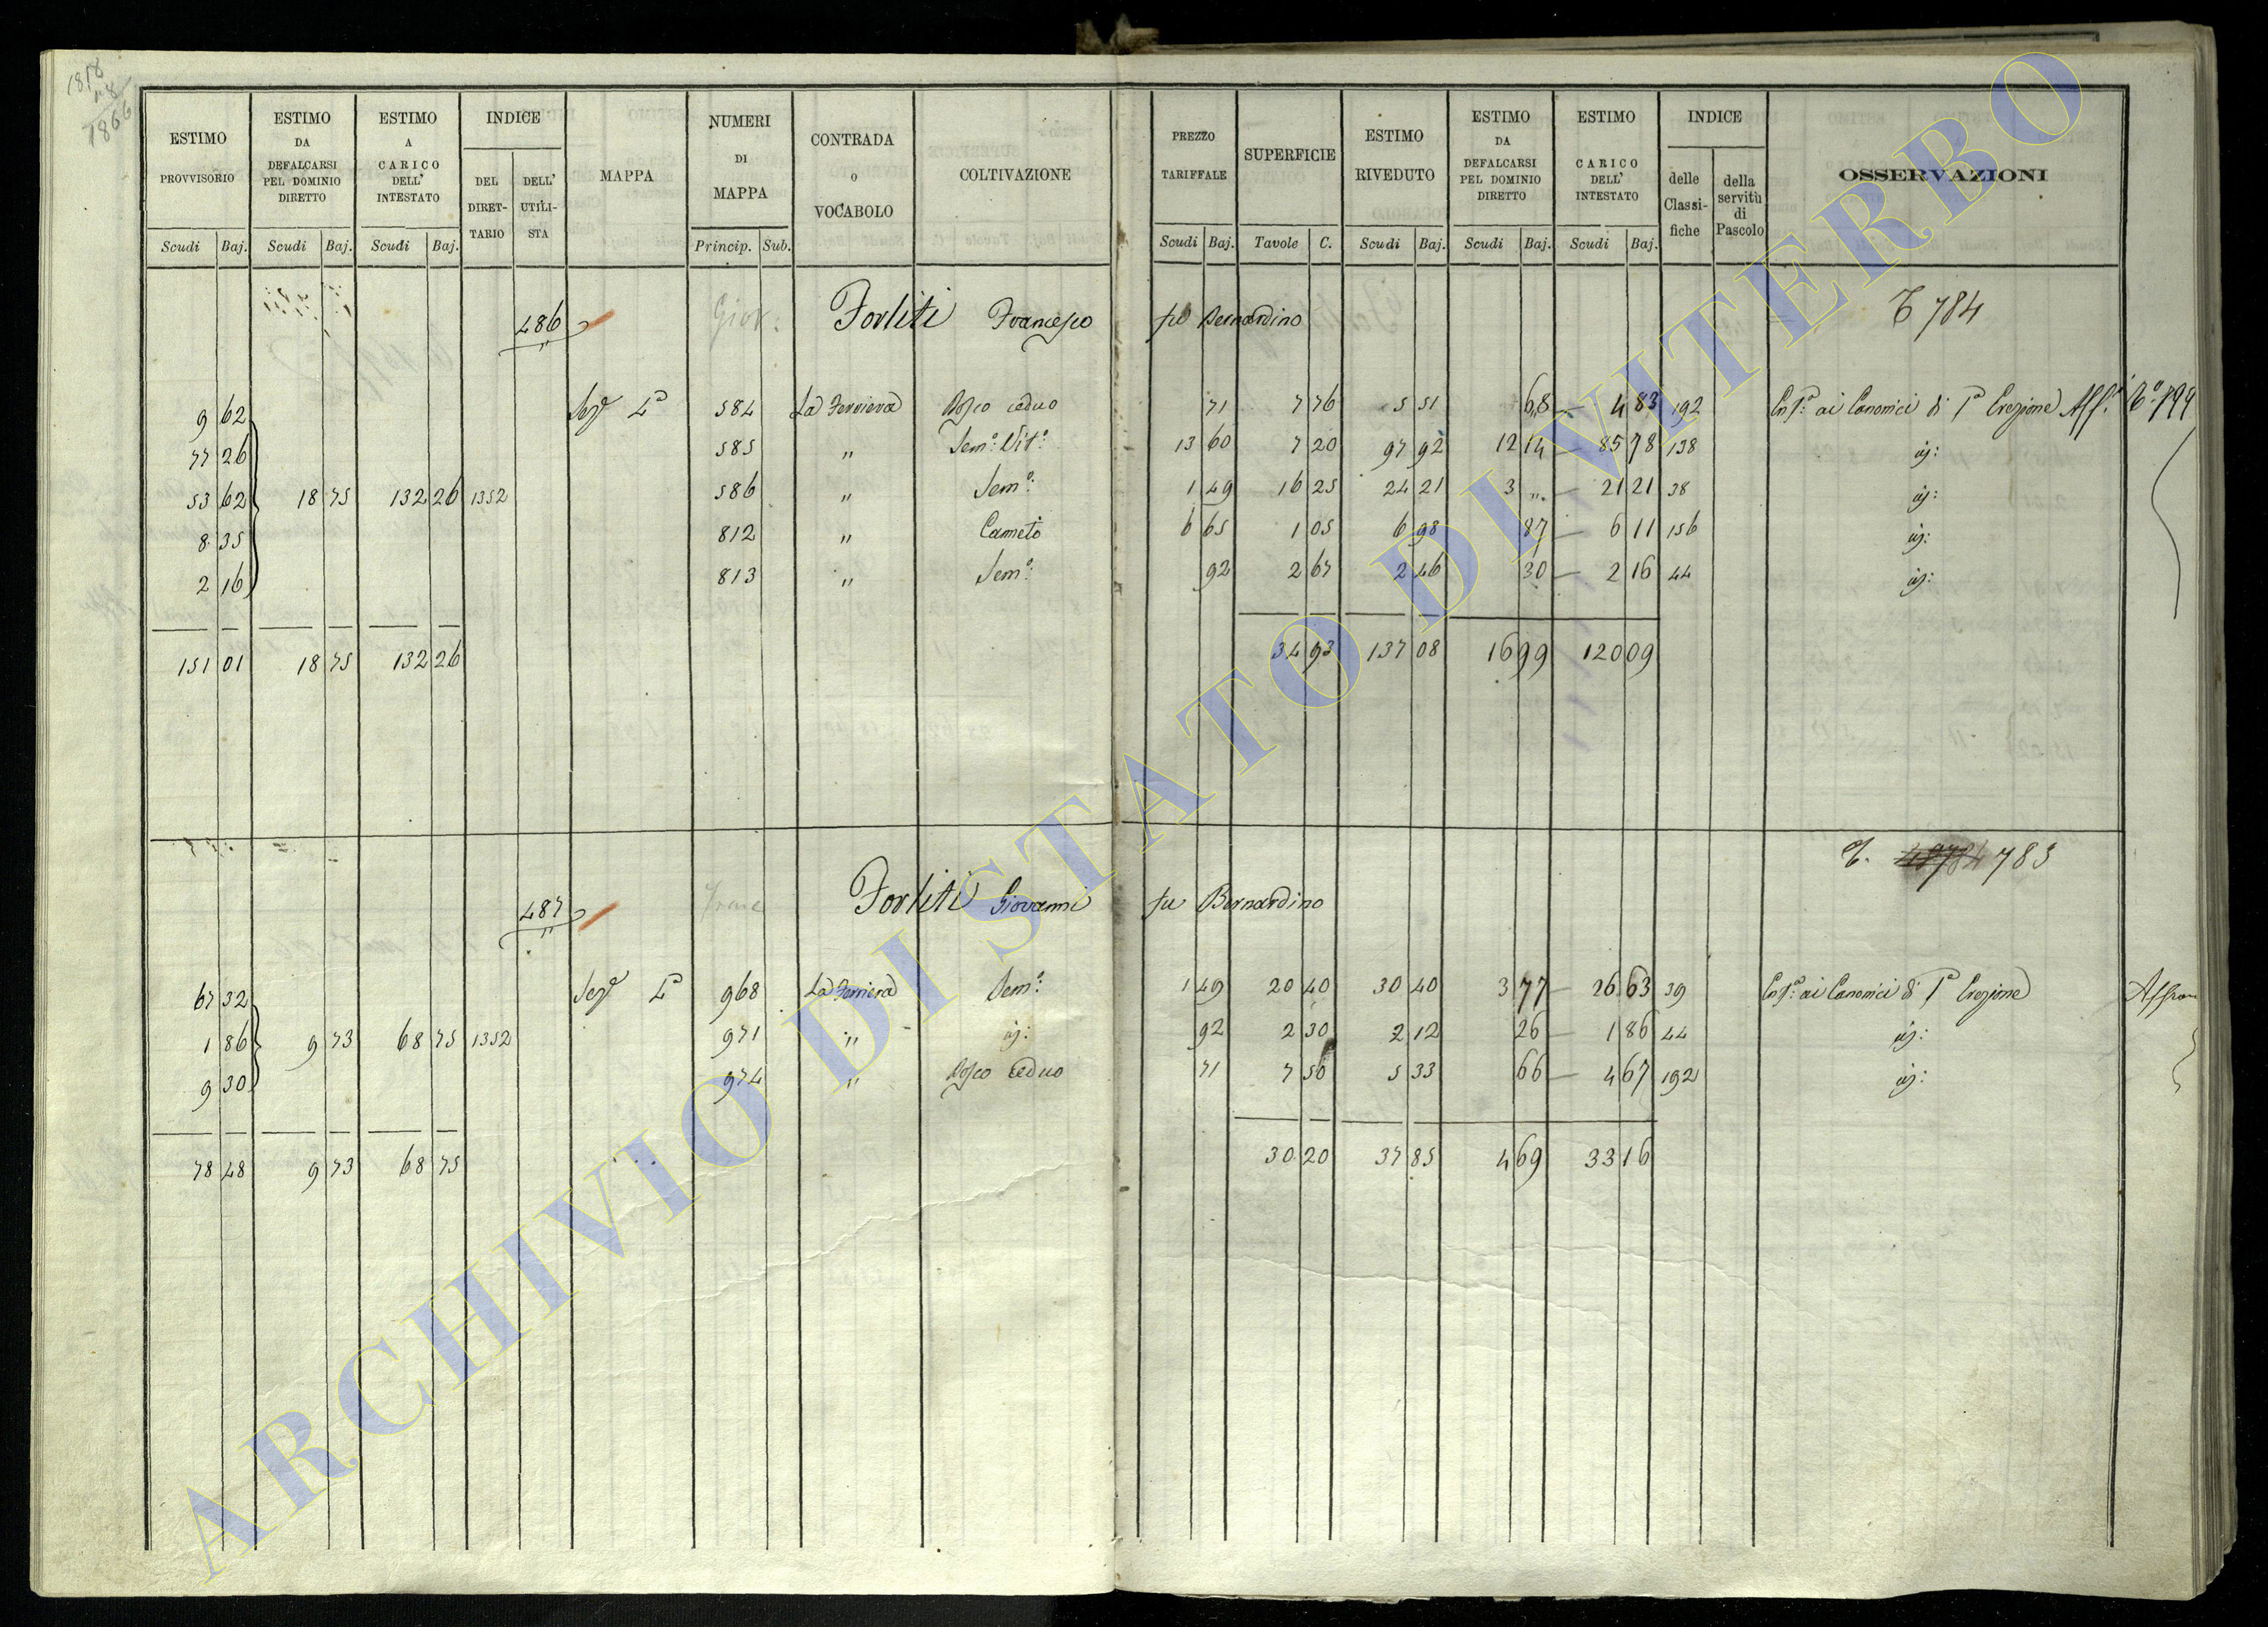 1818
1866
ESTIMO PROVVISORIO Scudi Baj.
ESTIMO DA DEFALCARSI PEL DOMINIO DIRETTO Scudi Baj.
ESTIMO A CARICO DELL' INTESTATO Scudi Baj.
INDICE DEL DIRET- TARIO DELL' UTILI- STA
MAPPA
NUMERI DI MAPPA Princip. Sub.
CONTRADA o VOCABOLO
COLTIVAZIONE
PREZZO TARIFFALE Scudi Baj.
SUPERFICIE Tavole C.
ESTIMO RIVEDUTO Scudi Baj.
ESTIMO DA DEFALCARSI PEL DOMINIO DIRETTO Scudi Baj.
ESTIMO A CARICO DELL' INTESTATO Scudi Baj.
INDICE delle Classi- fiche della servitù di Pascolo
OSSERVAZIONI
486 Giov: Forliti Francesco fu Bernardino 784
9 62 Sez.e 4a 584 La Ferriera Bosco ceduo 71 7 76 5 51 68 4 83 192 ai Canonici di Pa Erezione Aff.
77 26 585 " Sem.o Vit.o 13 60 7 20 97 92 12 14 85 78 138 id:
53 62 18 75 132 26 1352 586 " Sem.o 1 49 16 25 24 21 3 " 21 21 38 id:
8 35 812 " Canneto 6 65 1 05 6 98 87 6 11 156 id:
2 16 813 " Sem.o 92 2 67 2 46 30 2 16 44 id:
151 01 18 75 132 26 34 93 137 08 16 99 120 09
783
487 Franc Forliti Giovanni fu Bernardino
67 32 Sez.e 4a 968 La Ferriera Sem.o 1 49 20 40 30 40 3 77 26 63 39 ai Canonici di Pa Erezione Affran
1 86 9 73 68 75 1352 971 " id: 92 2 30 2 12 26 1 86 44 id:
9 30 974 " Bosco ceduo 71 7 50 5 33 66 4 67 192 id:
78 48 9 73 68 75 30 20 37 85 4 69 33 16
ARCHIVIO DI STATO DI VITERBO